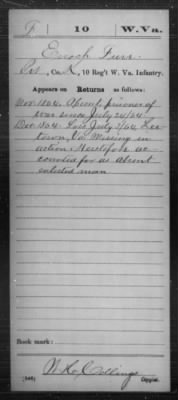 F 10 W.Va.
Enoch Furr
Pvt, Co. K, 10 Reg't W. Va. Infantry.
Appears on Returns as follows:
Nov 1864, Absent, prisoner of
war since July 24/64
Dec 1864 Loss July 3/64, Lee
town, Va. Missing in
action. Heretofore ac
counted for as absent
enlisted man
Book mark:
(546) Copyist.